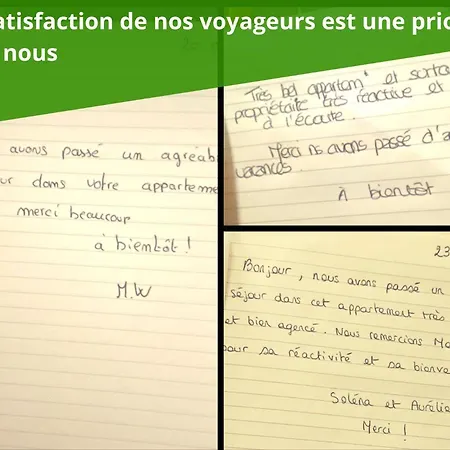 atisfaction de nos voyageurs est une prio
nous
avons passé un agréab
ur dans votre apparteme
merci beaucoup
à bientôt !
M.W
Très bel appartam^t et surto
propriétaire très réactive et
à l'écoute.
Merci ns avons passé d'a
vacances.
A bientôt
23
Bonjour, nous avons passé un
séjour dans cet appartement très
et bien agencé. Nous remercions Ma
pour sa réactivité et sa bienve
Soléna et Aurélie
Merci !